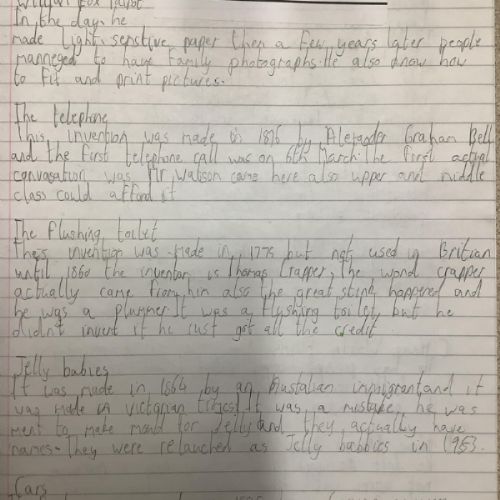 William Fox Talbot
In the day he
made light sensetive paper then a few years later people
manneged to have family photographs. He also know how
to fix and print pictures.
The telephone
This invention was made in 1876 by Alexander Graham Bell
and the first telephone call was on 6th March. The first actual
convasation was Mr Watson come here also upper and middle
class could afford it
The flushing toilet
This invention was made in 1775 but not used in Britian
until 1860 the inventor is Thomas Crapper, the word crapper
actually came from him also the great stink happened and
he was a plummer. It was a flushing toilet, but he
didn't invent it he just got all the credit
Jelly babies
It was made in 1864 by an Austalian immigrant, and it
was made in victorian times. It was a mistake, he was
ment to make mould for Jelly and they actually have
names. They were relaunched as Jelly babbies in 1953.
Cars